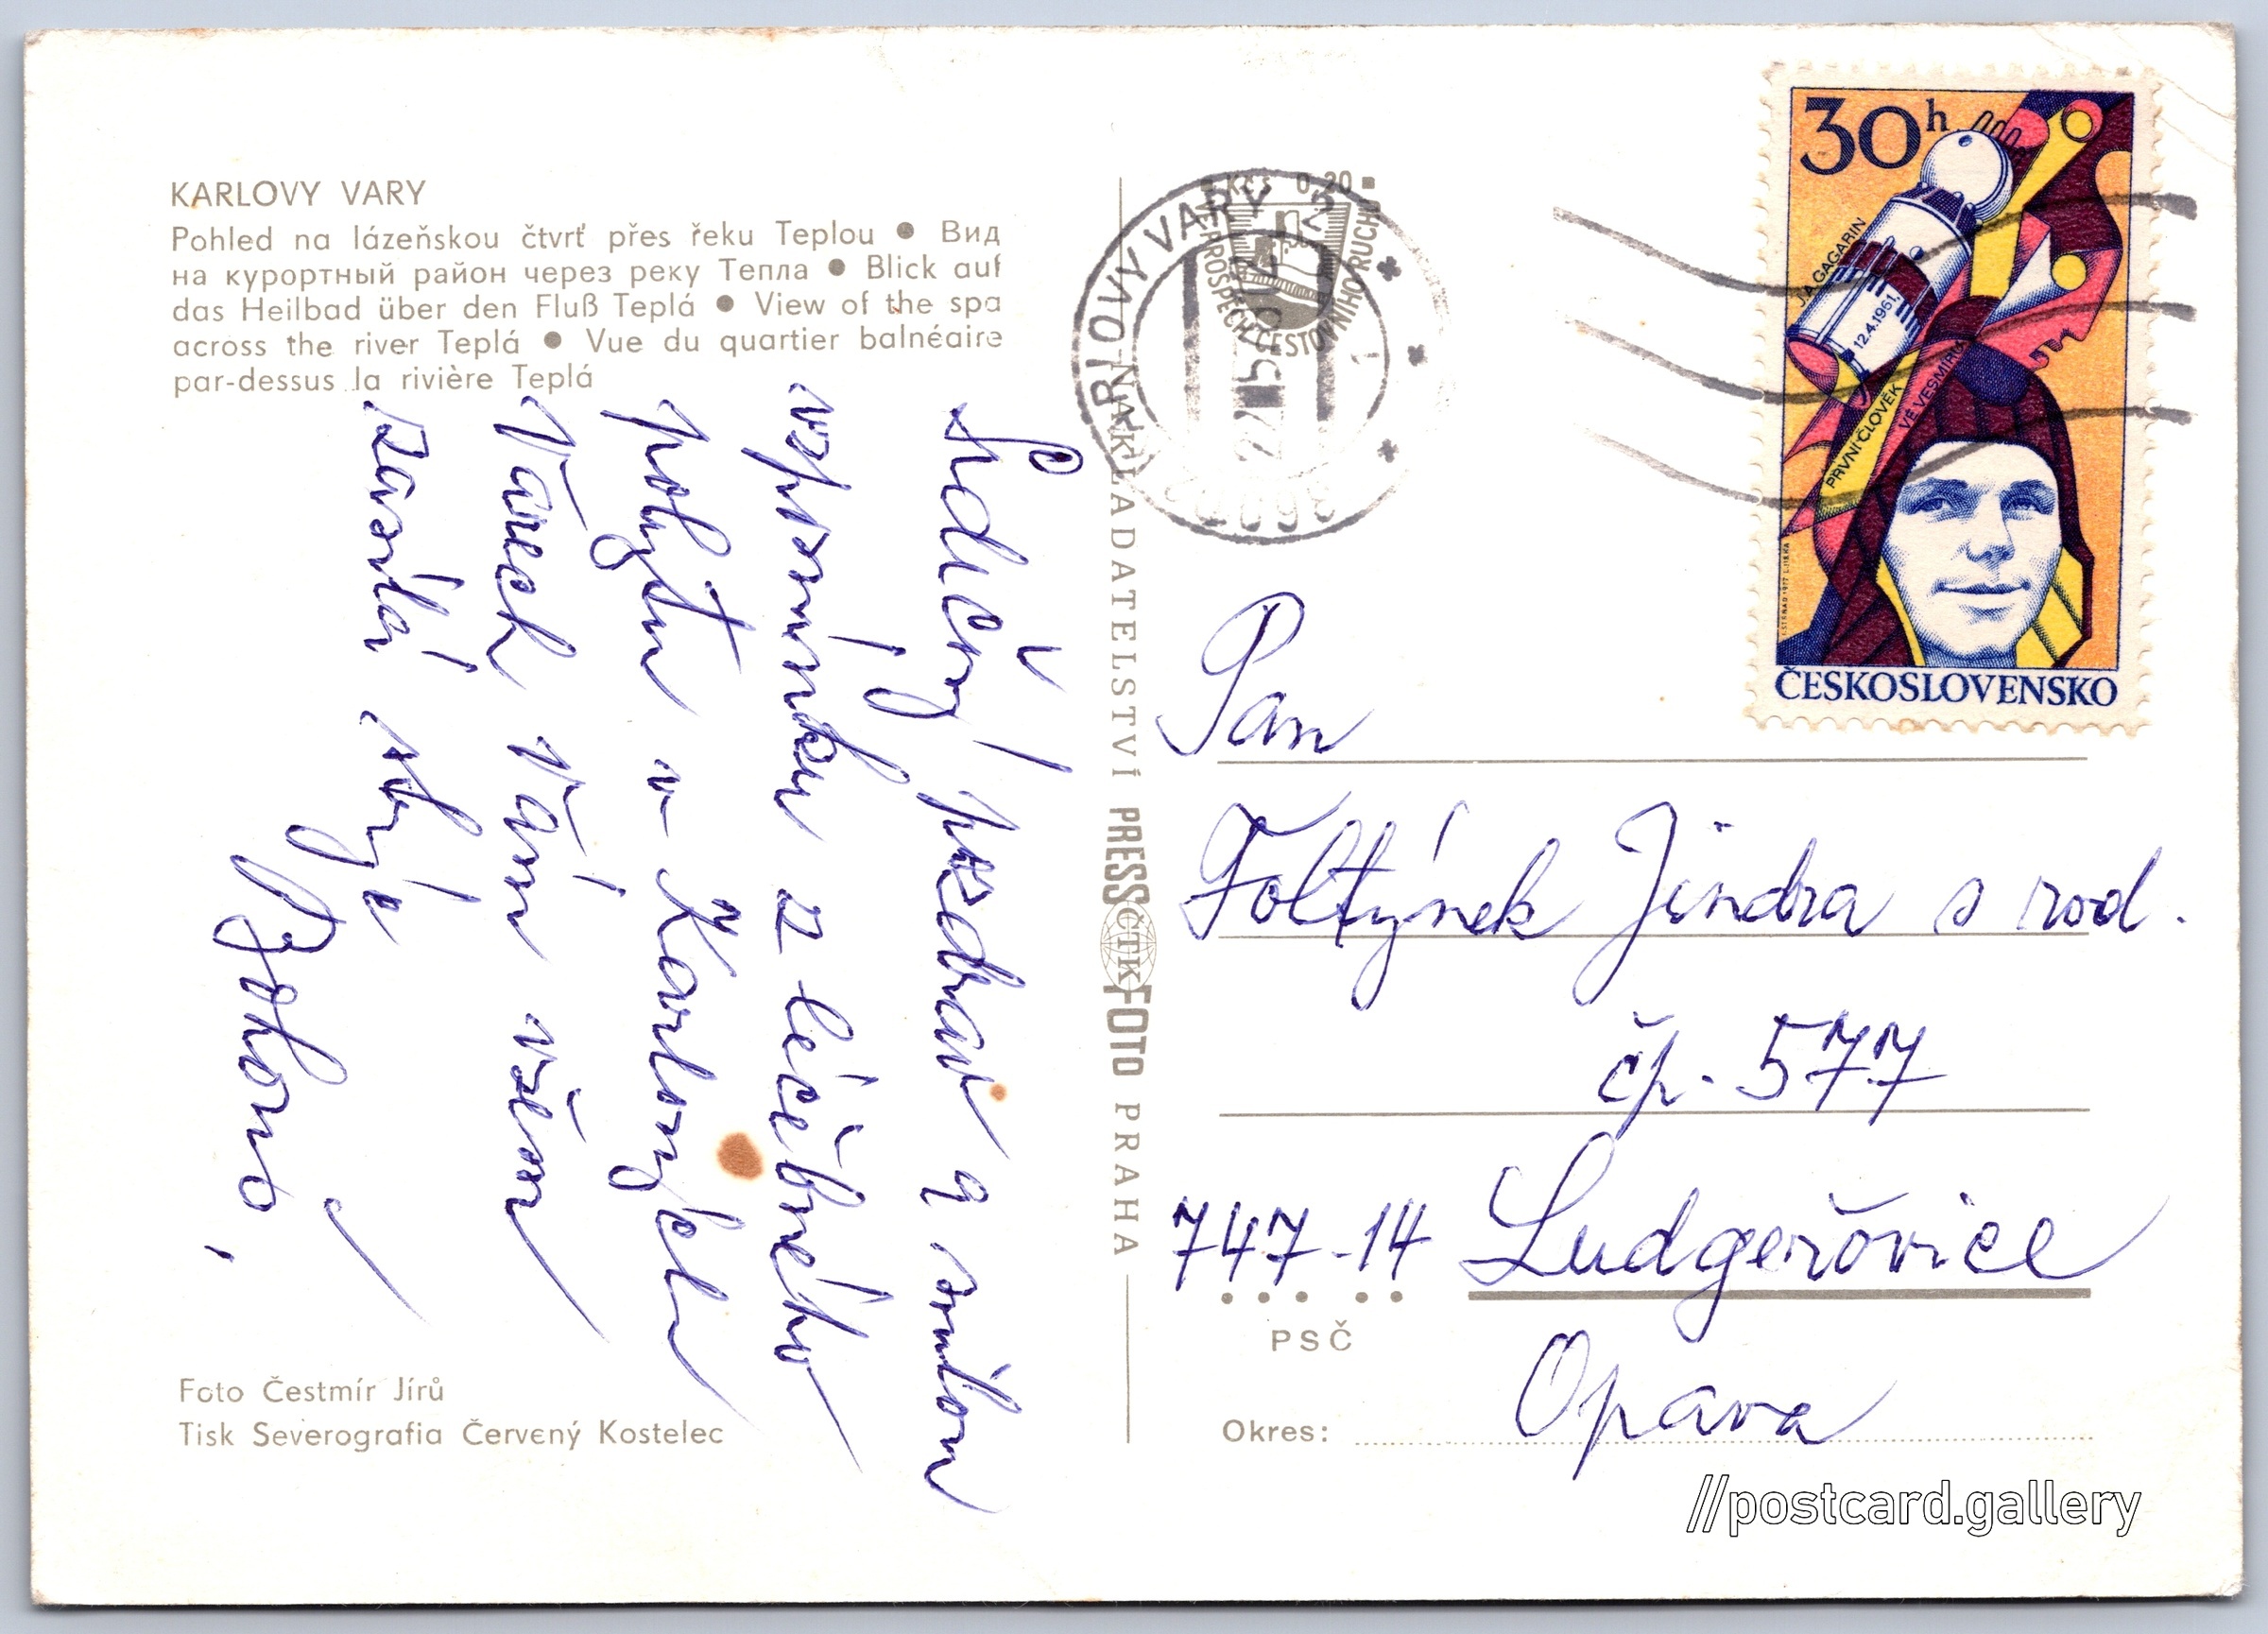 KARLOVY VARY
Pohled na lázeňskou čtvrť přes řeku Teplou ● Вид
на курортный район через реку Тепла ● Blick auf
das Heilbad über den Fluß Teplá ● View of the spa
across the river Teplá ● Vue du quartier balnéaire
par-dessus la rivière Teplá
Srdečný pozdrav a milou
vzpomínku z léčebného
pobytu v Karlových
Varech Vám všem
zasílá strýc
Bohouš,
Foto Čestmír Jírů
Tisk Severografia Červený Kostelec
NAKLADATELSTVÍ PRESSFOTO PRAHA
ČTK
Kčs 0,20
VE PROSPĚCH CESTOVNÍHO RUCHU
KARLOVY VARY 2
30h
J.A.GAGARIN
12.4.1961
PRVNÍ ČLOVĚK
VE VESMÍRU
ČESKOSLOVENSKO
Pan
Foltýnek Jindra s rod.
čp. 577
747-14 Ludgeřovice
PSČ
Okres: Opava
//postcard.gallery